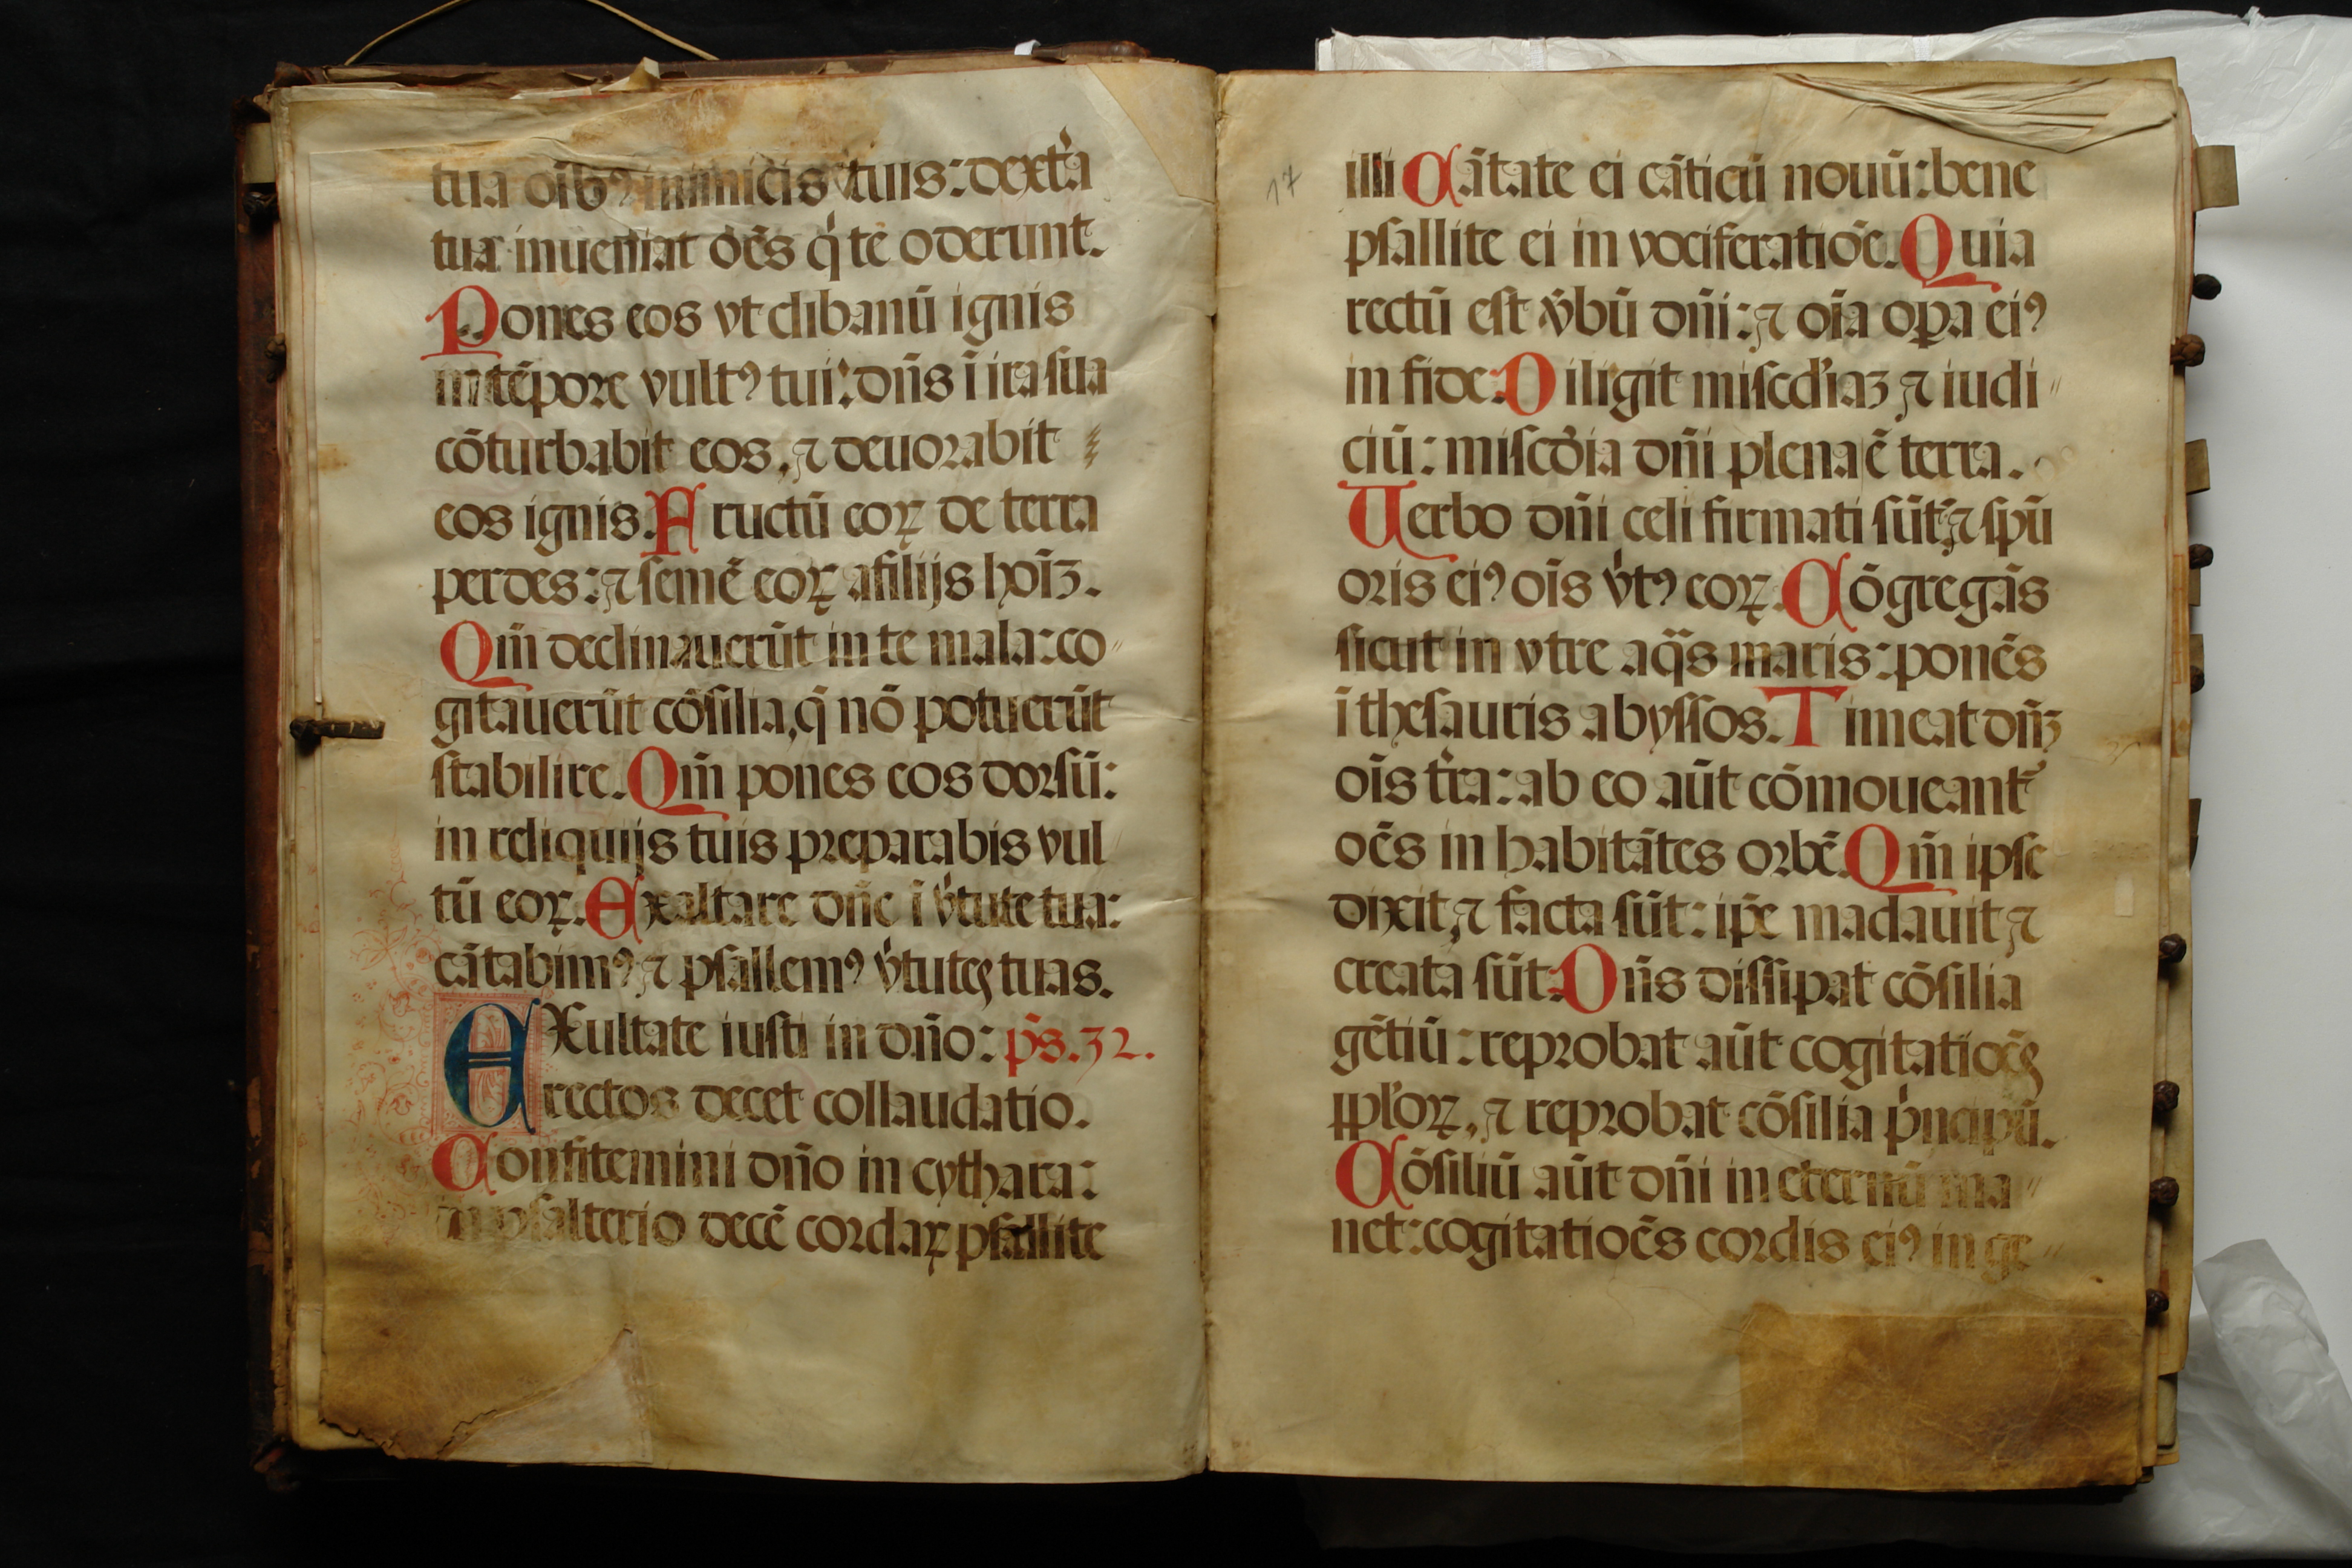 tua oīb⁹ inimicis tuis: dext̾a
tua inueniat oēs q̇ te oderunt.
Pones eos vt clibanū ignis
in tēpore vult⁹ tui: dn̄s ī ira sua
cōturbabit eos, ⁊ deuorabit
eos ignis. Fructū eoꝝ de terra
perdes: ⁊ semē eoꝝ a filijs hoīʒ.
Qm̄ declinauerūt in te mala: co〃
gitauerūt cōsilia, q̄ nō potuerūt
stabilire. Qm̄ pones eos dorsū:
in reliquijs tuis preparabis vul〃
tū eoꝝ. Exaltare dn̄e ī v̾tute tua:
cātabim⁹ ⁊ psallem⁹ v̾tutes tuas.
EXultate iusti in dn̄o: ps̄. 32.
rectos decet collaudatio.
Confitemini dn̄o in cythara:
in psalterio decē cordaꝝ psallite
17
illi Cātate ei cāticū nouū: bene
psallite ei in vociferatiōe. Quia
rectū est v̾bū dn̄i: ⁊ oīa oꝑa ei⁹
in fide: Diligit miscd̓iaʒ ⁊ iudi〃
ciū: miscd̓ia dn̄i plena ē terra.
Uerbo dn̄i celi firmati sūt: ⁊ spū
oris ei⁹ oīs v̾t⁹ eoꝝ. Cōgregās
sicut in vtre aq̄s maris: ponēs
ī thesauris abyssos. Timeat dn̄ʒ
oīs t̾ra: ab eo aūt cōmoueant̾
oēs in habitātes orbē. Qm̄ ipse
dixit ⁊ facta sūt: ip̄e mādauit ⁊
creata sūt: Dn̄s dissipat cōsilia
gētiū: reprobat aūt cogitatiōes
ppl̓oꝝ, ⁊ reprobat cōsilia p̓ncipū.
Cōsiliū aūt dn̄i in eternū ma〃
net: cogitatiōes cordis ei⁹ in ge〃